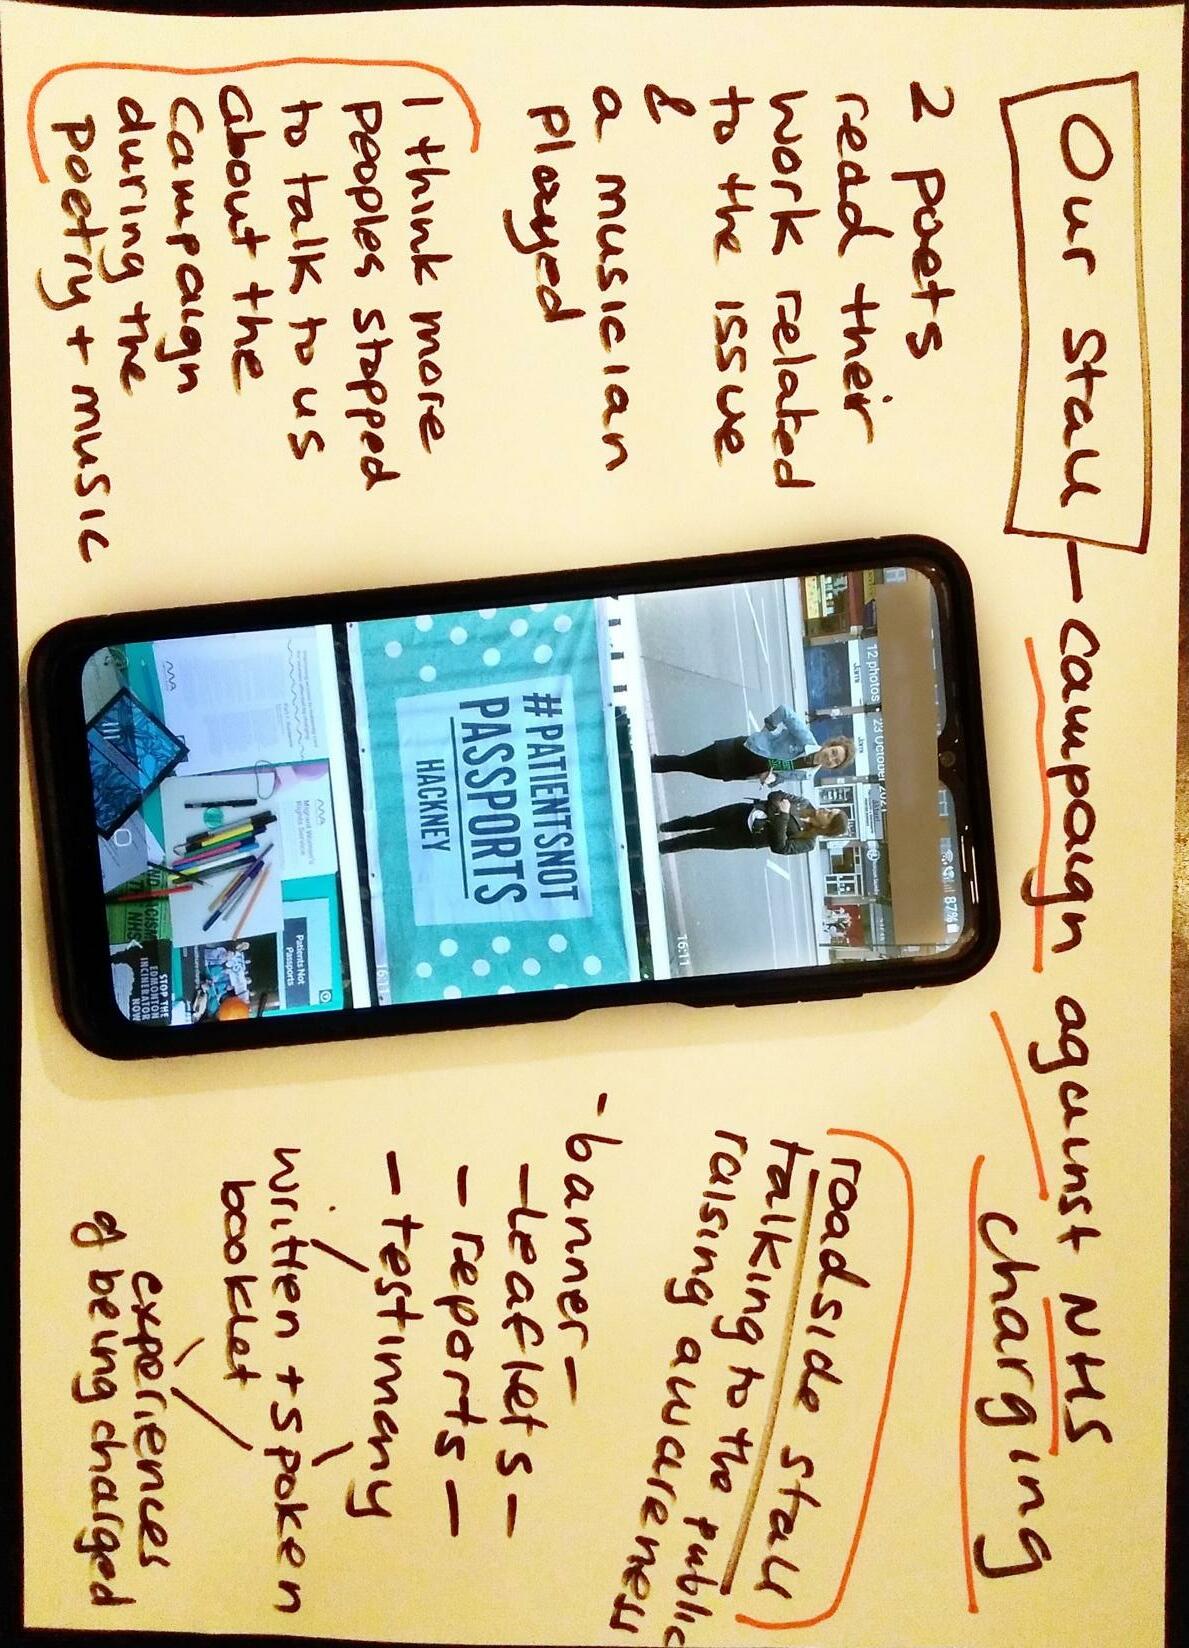 Our Stall – campaign against NHS
charging
2 poets
read their
work related
to the issue
&
a musician
played
I think more
peoples stopped
to talk to us
about the
campaign
during the
poetry + music
87%
12 photos 23 October 2021
16:11
#PATIENTSNOT
PASSPORTS
HACKNEY
16:11
Migrant Women's
Rights Service
Patients Not
Passports
STOP THE
EDMONTON
INCINERATOR
NOW
roadside stall
talking to the public
raising awareness
- banner -
- Leaflets -
- reports -
- testimany
written + spoken
booklet
experiences
of being charged